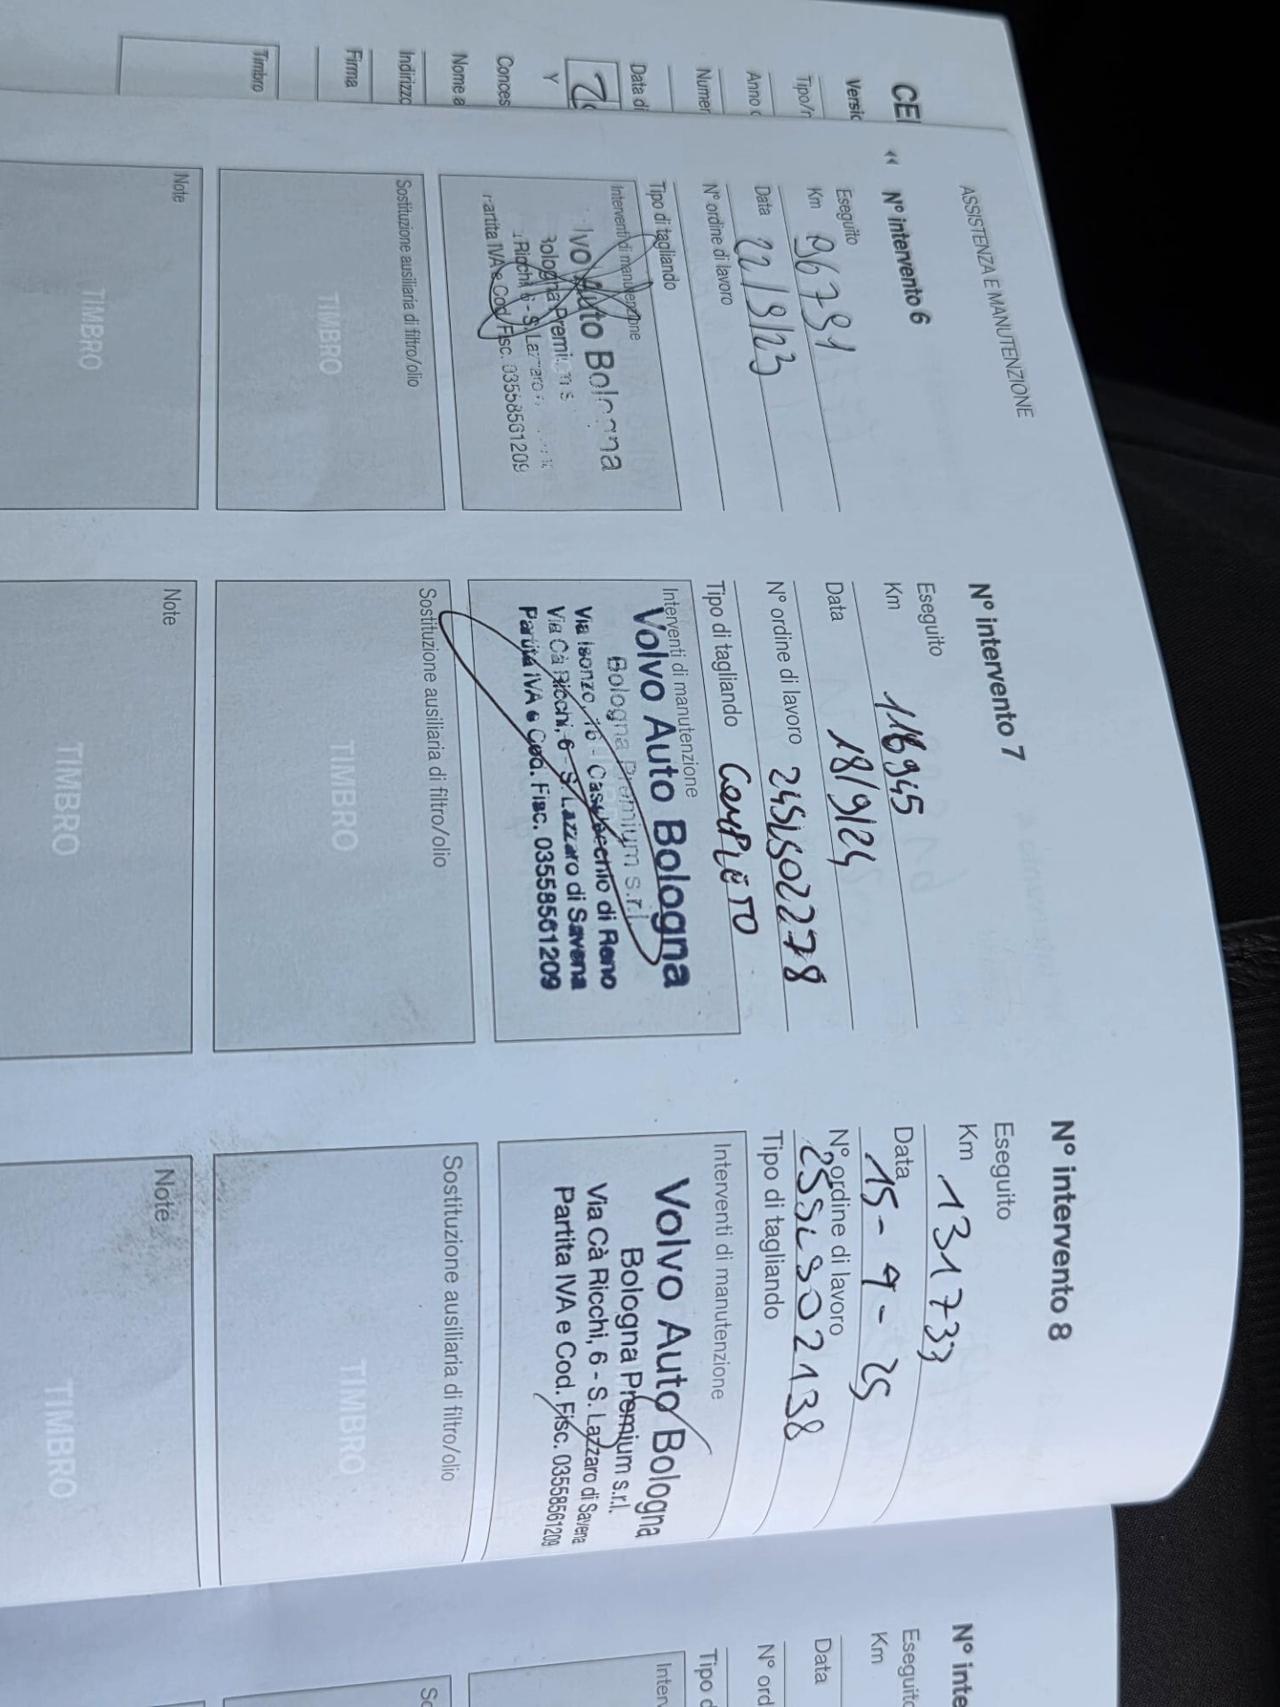 CE
Versio
Tipo/n
Anno d
Numer
Data di
Y
Conces
Nome a
Indirizzo
Firma
Timbro
ASSISTENZA E MANUTENZIONE
« N° intervento 6
Eseguito
Km 96791
Data 22/9/23
N° ordine di lavoro
Tipo di tagliando
Interventi di manutenzione
lvo Auto Bologna
Bologna Premium s
Ricchi, 6 - S. Lazzaro
Partita IVA e Cod. Fisc. 03558561209
Sostituzione ausiliaria di filtro/olio
TIMBRO
Note
TIMBRO
N° intervento 7
Eseguito
Km 118945
Data 18/9/24
N° ordine di lavoro 24SLS02278
Tipo di tagliando COMPLETO
Interventi di manutenzione
Volvo Auto Bologna
Bologna Premium s.r.l.
Via Isonzo, 10 - Casalecchio di Reno
Via Cà Ricchi, 6 - S. Lazzaro di Savena
Partita IVA e Cod. Fisc. 03558561209
Sostituzione ausiliaria di filtro/olio
TIMBRO
Note
TIMBRO
N° intervento 8
Eseguito
Km 131733
Data 15-9-25
N° ordine di lavoro
25SLS02138
Tipo di tagliando
Interventi di manutenzione
Volvo Auto Bologna
Bologna Premium s.r.l.
Via Cà Ricchi, 6 - S. Lazzaro di Savena
Partita IVA e Cod. Fisc. 03558561209
Sostituzione ausiliaria di filtro/olio
TIMBRO
Note
TIMBRO
N° inte
Eseguito
Km
Data
N° ord
Tipo d
Interv
So